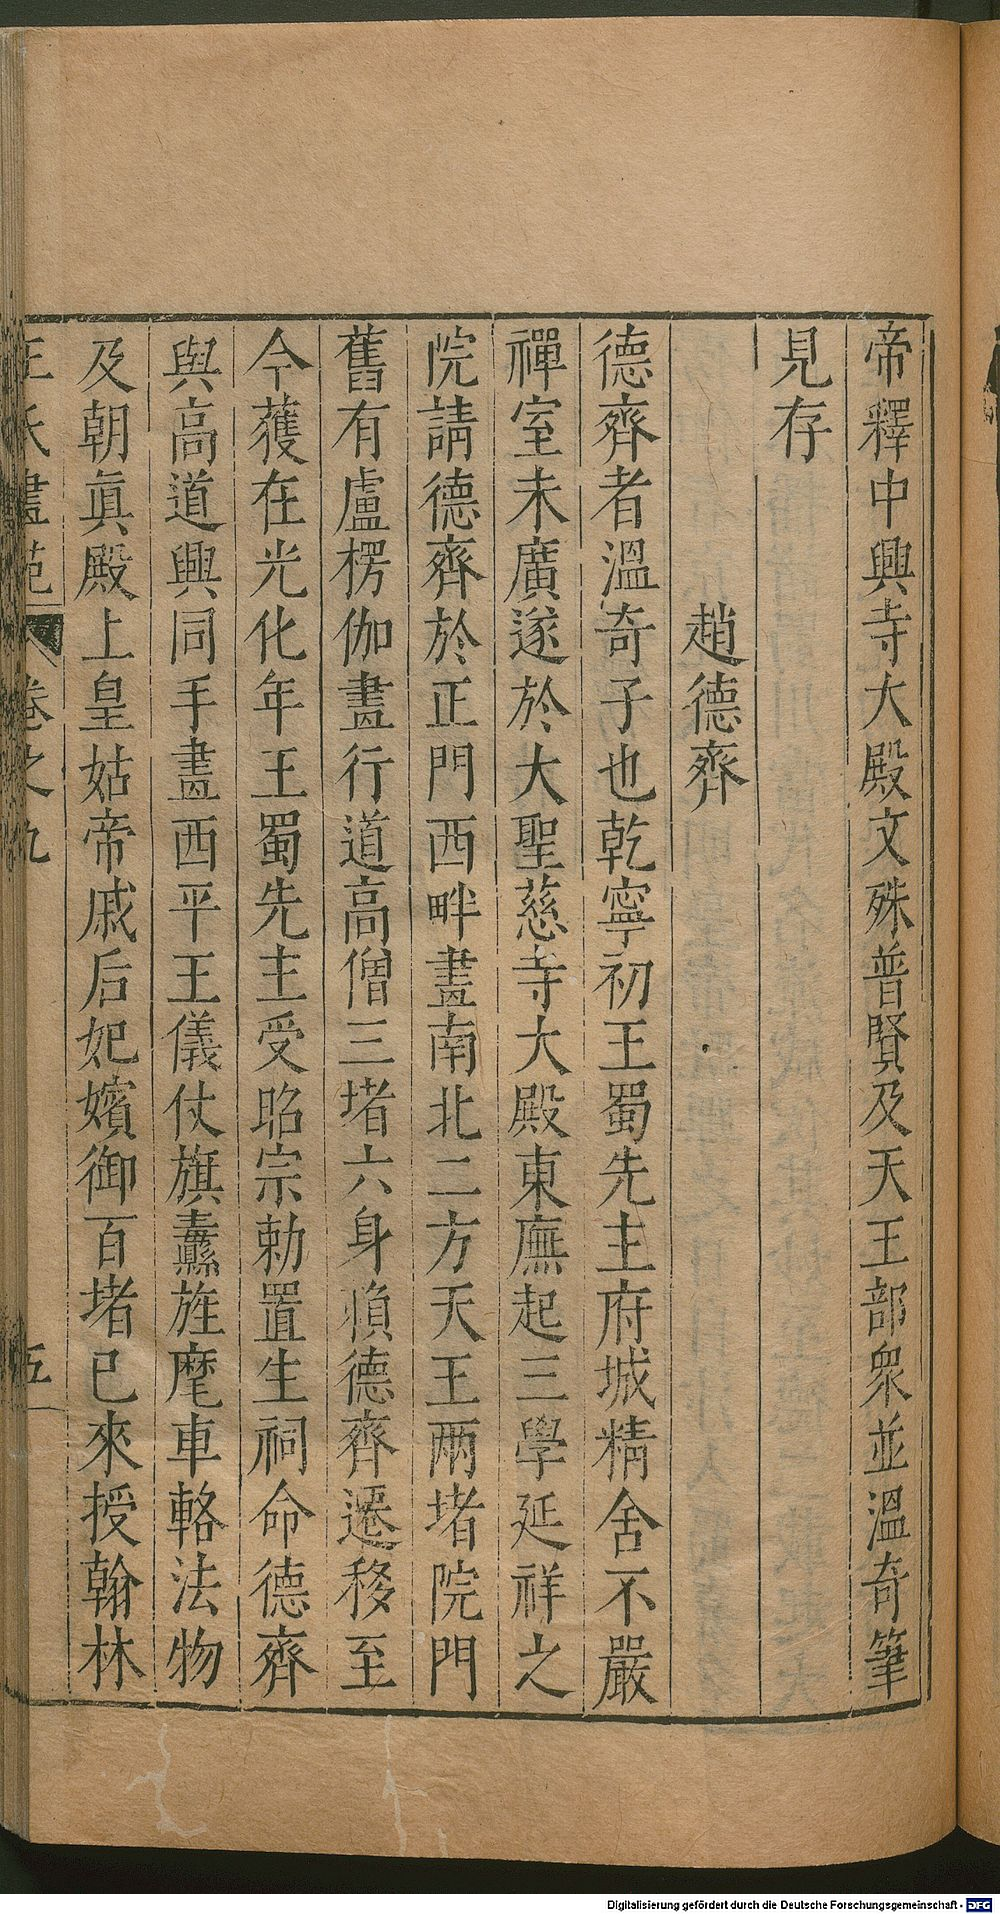 帝釋中興寺大殿文殊普賢及天王部衆並溫奇筆
見存
趙德齊
德齊者溫奇子也乾寧初王蜀先主府城精舍不嚴
禪室未廣遂於大聖慈寺大殿東廡起三學延祥之
院請德齊於正門西畔畫南北二方天王兩堵院門
舊有盧楞伽畫行道高僧三堵六身賴德齊遷移至
今獲在光化年王蜀先主受昭宗勅置生祠命德齊
與高道興同手畫西平王儀仗旗纛旌麾車輅法物
及朝眞殿上皇姑帝戚后妃嬪御百堵已來授翰林
王氏畫苑 卷之九 五
Digitalisierung gefördert durch die Deutsche Forschungsgemeinschaft - DFG